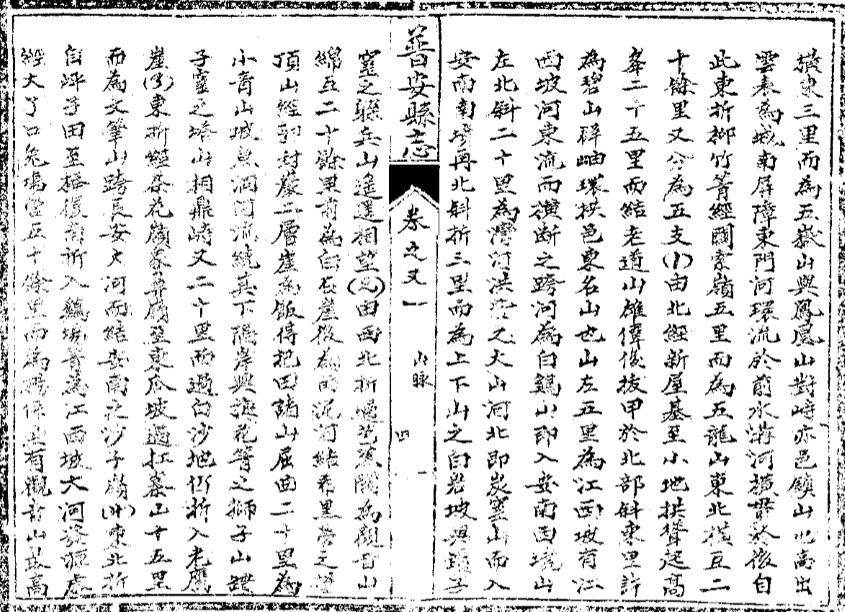 積東三里而為五嶽山與鳳凰山對峙亦邑鎮山也高出
雲表為城南屏障東門河環流於前水溝河橫帶於後自
此東折柳竹箐經關索嶺五里而為五龍山東北橫亙二
十餘里又分為五支(1)由北經新屋基至小地拱聳起高
峯二十五里而結老道山雄偉俊拔甲於北部斜東里許
為碧山群岫環拱邑東名山也山左五里為江西坡有江
西坡河東流而橫斷之跨河為白鷄山即入安南西境山
左北斜二十里為灣河洪之大山河北即炭窰山而入
安南南境再北斜折三里而為上下山之白岩坡與瑤子
普安縣志
卷之又一
山脉
四
窰之躲兵山遙遙相望(2)由西北折芭蕉關為觀音山
綿亙二十餘里前為白石崖後為泥河結之營
頂山經封崖二層崖為飯傳把田諸山屈曲二十里為
小青山坡魚洞河流繞其下隔岸與蓮花箐之獅子山
子窰之山相鼎峙又二十里而過白沙地仍折入老鷹
崖(3)東折經茶花嶺至東瓜坡過扛墓五十五里
而為文筆山跨長安大河而結安南之沙子嶺(4)東北折
自坪子田至南折入箐為江西坡大河發源處
經大丫口兔場營五十餘里而為也有觀音山最高